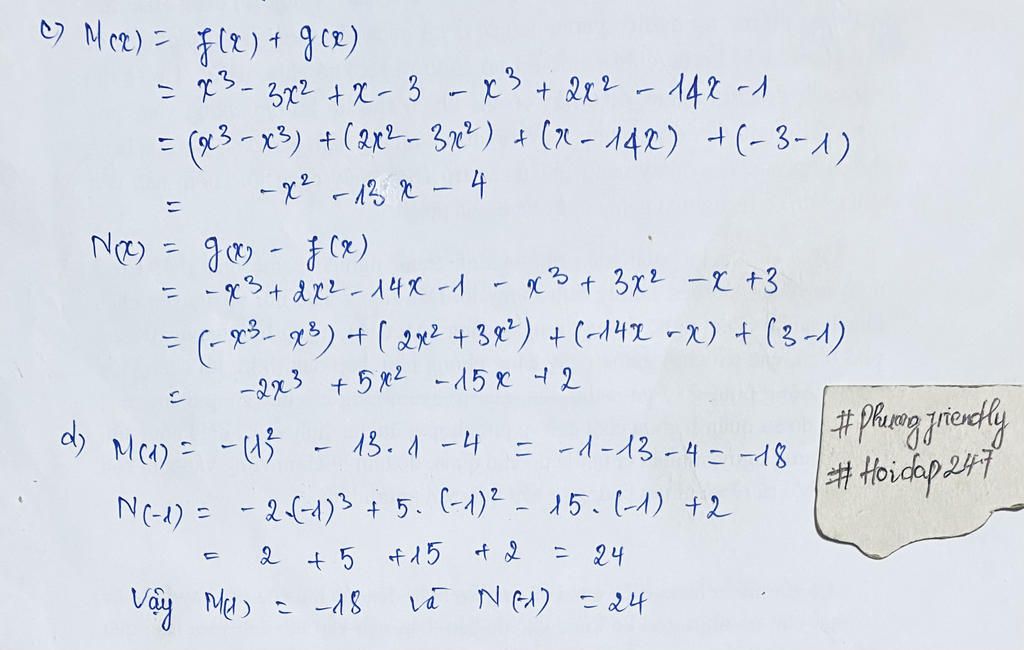 c) M(x) = f(x) + g(x)
= x³ - 3x² + x - 3 - x³ + 2x² - 14x - 1
= (x³ - x³) + (2x² - 3x²) + (x - 14x) + (-3 - 1)
= -x² - 13x - 4
N(x) = g(x) - f(x)
= -x³ + 2x² - 14x - 1 - x³ + 3x² - x + 3
= (-x³ - x³) + (2x² + 3x²) + (-14x - x) + (3 - 1)
= -2x³ + 5x² - 15x + 2
d) M(1) = -(1)² - 13.1 - 4 = -1 - 13 - 4 = -18
N(-1) = -2.(-1)³ + 5.(-1)² - 15.(-1) + 2
= 2 + 5 + 15 + 2 = 24
Vậy M(1) = -18 và N(-1) = 24
# Phuongfriendly
# Hoidap247